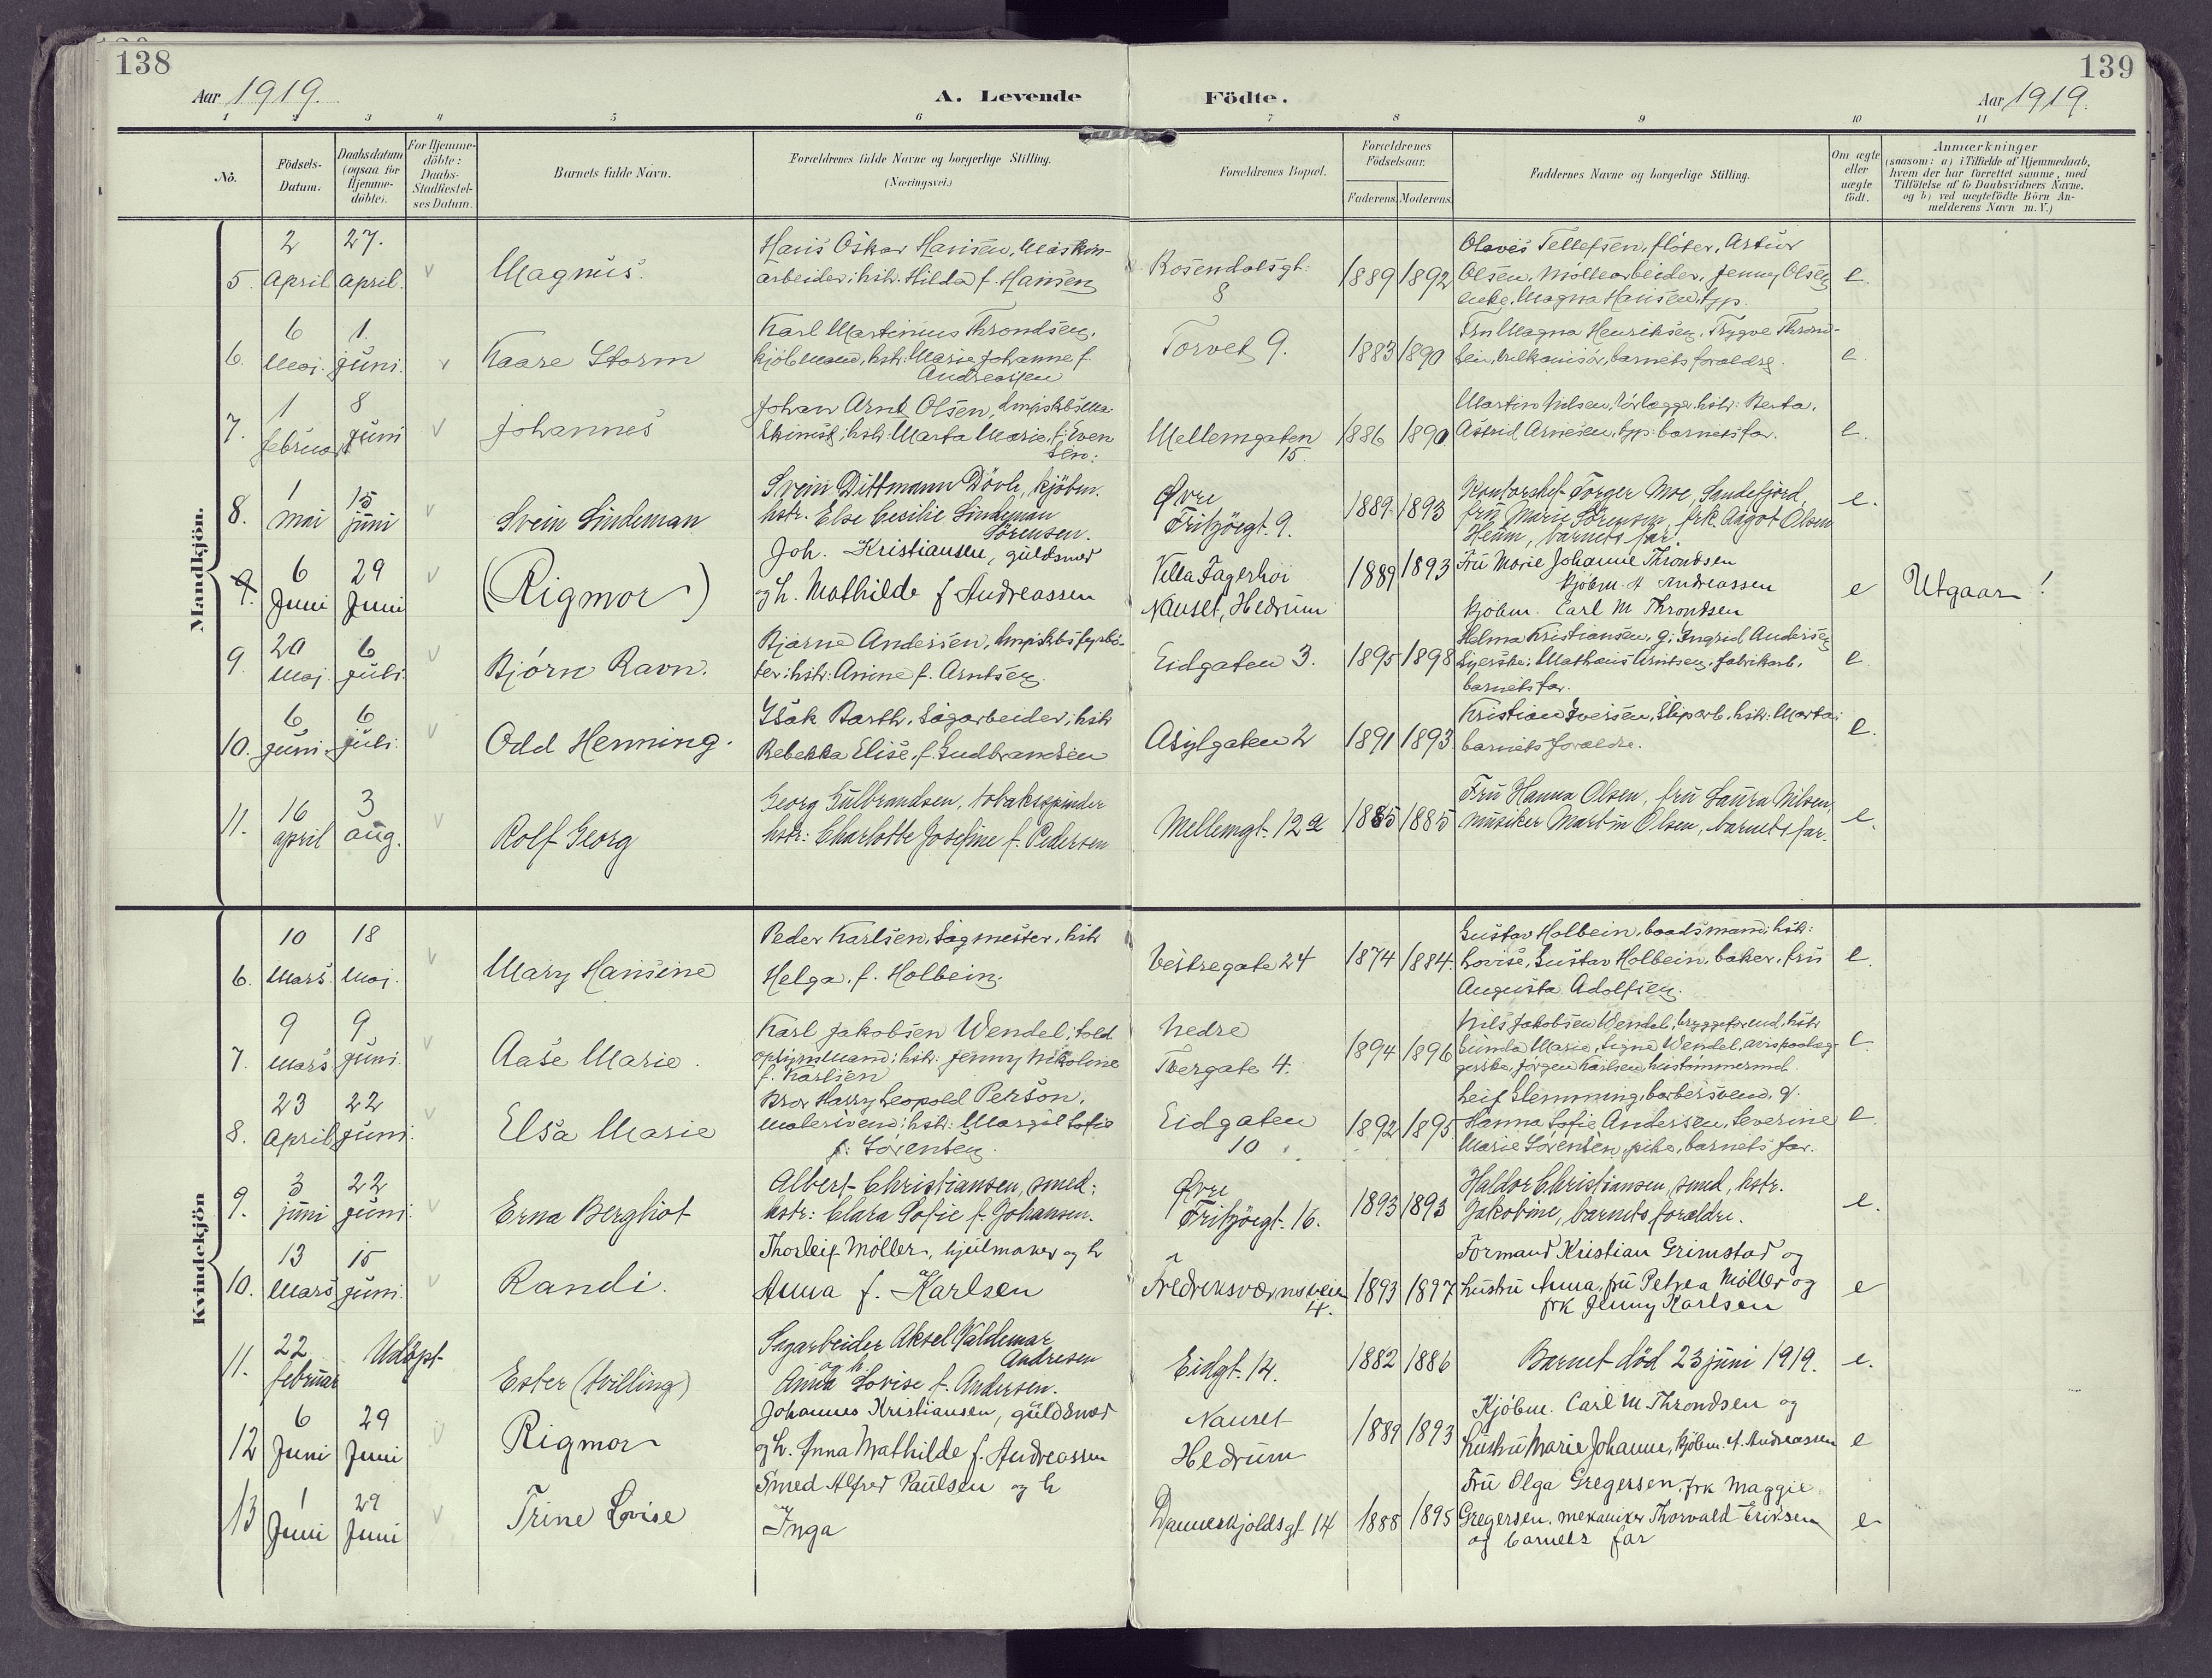 138
139
Aar 1919.
A. Levende
Födte.
Aar 1919.
1 2 3 4 5 6 7 8 9 10 11
Nö.
Födsels-
Datum.
Daabsdatum
(ogsaa for
Hjemme-
döbte).
For Hjemme-
döbte:
Daabs-
Stadfæstel-
ses Datum.
Barnets fulde Navn.
Forældrenes fulde Navne og borgerlige Stilling.
(Næringsvei.)
Forældrenes Bopæl.
Forældrenes
Födselsaar.
Faderens. Moderens.
Faddernes Navne og borgerlige Stilling.
Om ægte
eller
uægte
födt.
Anmærkninger
(saasom: a) i Tilfælde af Hjemmedaab,
hvem der har forrettet samme, med
Tilföielse af to Daabsvidners Navne.
og b) ved uægtefödte Börn An-
melderens Navn m. V.)
Mandkjön.
2 27.
5 April April. v Magnus.
Hans Oskar Hansen, Maskin-
arbeider; hstr. Hilda f. Hansen
Rosendalsgt.
8
1889 1892
Olaves Tellefsen, fløter, Artur
Olsen, Møllearbeider, Jenny Olsen
enke, Magna Hansen, typ.
e.
6 1.
6. Maj. Juni. v Kaare Storm
Karl Martinius Throndsen,
kjöbmand, hstr. Marie Johanne f.
Andreassen
Torvet 9.
1883 1890
Fru Magna Henriksen, Trygve Thrond-
sen, barnets foraeldre.
e.
1 8
7. februar Juni v Johannes
Johan Arnt Olsen, dmpskbsma-
skinist; hstr. Marta Marie, f. Even
sen.
Mellemgaten
15.
1886 1890.
Martin Nilsen, rørlægger, hstr: Berta.
Astrid Arnesen, typ. barnets far.
e.
1 15
8. mai juni v Svein Lindeman
Svein Dittmann Dövle, kjöbm.
hstr. Else Cesilie Lindeman
Sörensen.
Øvre
Fritzöegt. 9.
1889. 1893
Kontorchef Torger Moe, Sandefjord,
fru Marie Sörensen, frk. Aagot Olsen
Heum, barnets far.
e.
6 29
9. Juni Juni v (Rigmor)
Joh. Kristiansen, guldsmed
og h. Mathilde f Andreassen
Villa Fagerhöi
Nauset, Hedrum
1889 1893
Fru Marie Johanne Throndsen
kjöbm. A Andreassen
kjöbm. Carl M Throndsen
e Utgaar!
20 6
9. Maj. Juli. v Bjørn Ravn.
Bjarne Andersen, dmpskbsfyrbö-
ter; hstr: Anine f. Arntsen.
Eidgaten 3.
1895 1898
Helma Kristiansen, g; Ingrid Andersen
syerske; Mathæus Arntsen, fabrikarb.
barnets far.
e.
6 6
10. Juni. Juli. v Odd Henning.
Isak Barth, Sagarbeider; hstr
Rebekka Elise, f. Gudbrandsen
Asylgaten 2
1891 1893
Kristian Iversen, Sliparb. hstr: Marta;
barnets foraeldre.
e.
16 3
11. april aug. v Rolf Georg
Georg Gulbrandsen, tobakspinder
hstr: Charlotte Josefine f. Pedersen
Mellemgt. 12a
1885 1885
Fru Hanna Olsen, fru Laura Nilsen,
musiker Martin Olsen, barnets far.
e.
Kvindekjön
10 18
6. Mars. Maj. v Mary Hansine
Peder Karlsen, Sagmester, hstr
Helga, f. Holbein.
Vestregate 24
1874 1884.
Gustav Holbein, baadsmand; hstr:
Lovise, Gustav Holbein, baker, fru
Augusta Adolfsen.
e.
9 9
7. Mars. Juni. v Aase Marie.
Karl Jakobsen Wendel; told
opsynsmand; hstr: Jenny Nikoline
f. Karlsen
Nedre
Tvergate 4.
1894 1896
Nils Jakobsen Wendel, bryggeformd, hstr
Gunda Marie, Signe Wendel,
Jørgen Karlsen, hustømmermd.
e
23 22
8. April Juni. v Elsa Marie
Bror Harry Leopold Person.
Malersvend; hstr: Margit Sofie
f: Sörensen.
Eidgaten
10
1892 1895
Leif Flemming, barbersvend, g.
Hanna Sofie Andersen, Severine
Marie Sörensen, pike, barnets far.
e.
3 22
9. juni juni v Erna Bergliot
Albert Christiansen, smed;
hstr: Clara Sofie f. Johansen.
Øvre
Fritzöegt. 16.
1893 1893
Haldor Christiansen, smed, hstr.
Jakobine, barnets foraeldre.
e.
13 15
10. Mars Juni. v Randi.
Thorleif Möller, hjulmaker og h
Anna f. Karlsen
Fredriksværnsveien
4.
1893 1897
Formand Kristian Grimstad og
hustru Anna, fru Petrea Möller og
frk Jenny Karlsen
e
22 Udöpt
11. februar Ester (tvilling)
Sagarbeider Aksel Valdemar
Andresen
og h.
Anna Lovise f. Andersen.
Eidgt. 14.
1882 1886
Barnet död 23 juni 1919. e.
6 29
12 Juni Juni v Rigmor
Johannes Kristiansen, guldsmed
og h. Anna Mathilde f. Andreassen
Nauset
Hedrum
1889 1893
Kjöbm. Carl M Throndsen og
hustru Marie Johanne, kjöbm. A. Andreassen
e
1 29
13 Juni Juni v Trine Lovise
Smed Alfred Paulsen og h
Inga
Danneskjoldsgt 14
1888 1895
Fru Olga Gregersen, frk Maggie
Gregersen, mekaniker Thorvald Eriksen
og barnets far
e